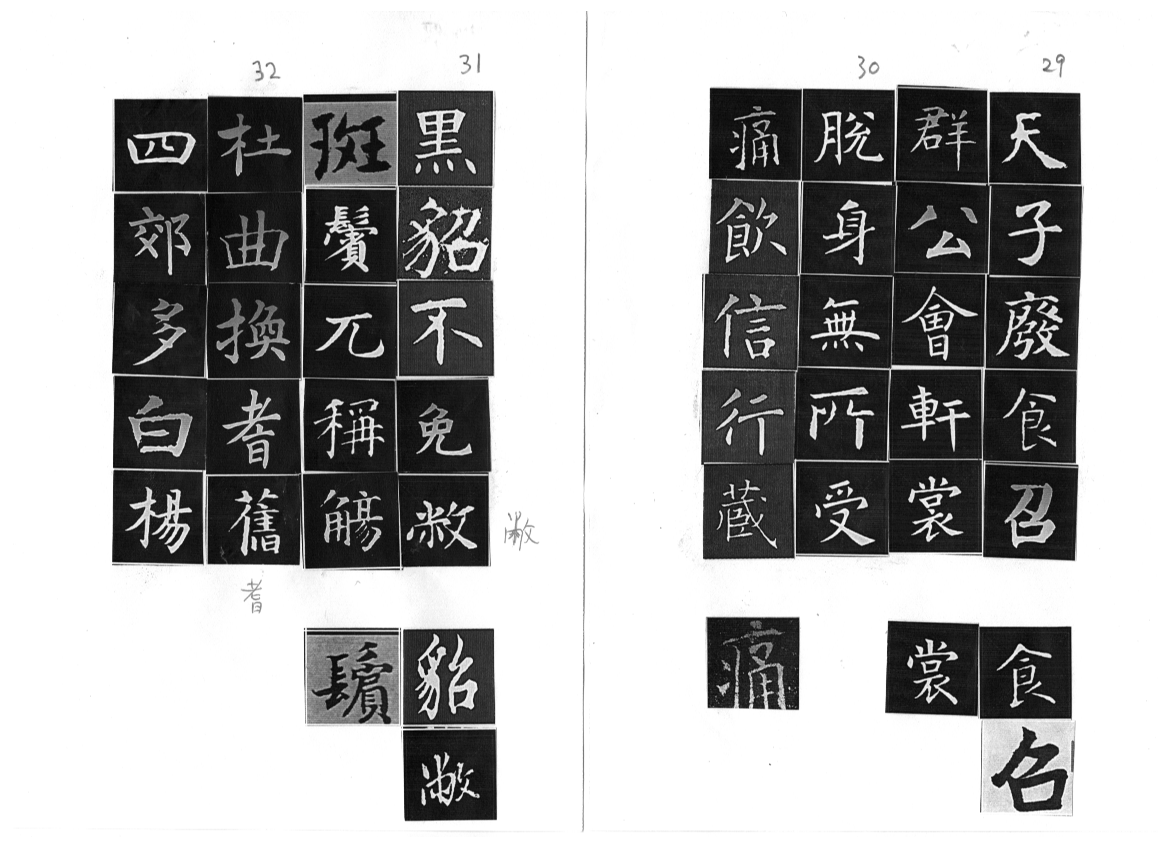 29
天子廢食召
群公會軒裳
30
脫身無所受
痛飲信行藏
食召
裳
痛
31
黑貂不免敝
斑鬢兀稱觴
32
杜曲換耆舊
四郊多白楊
敝
耆
貂敝
鬢